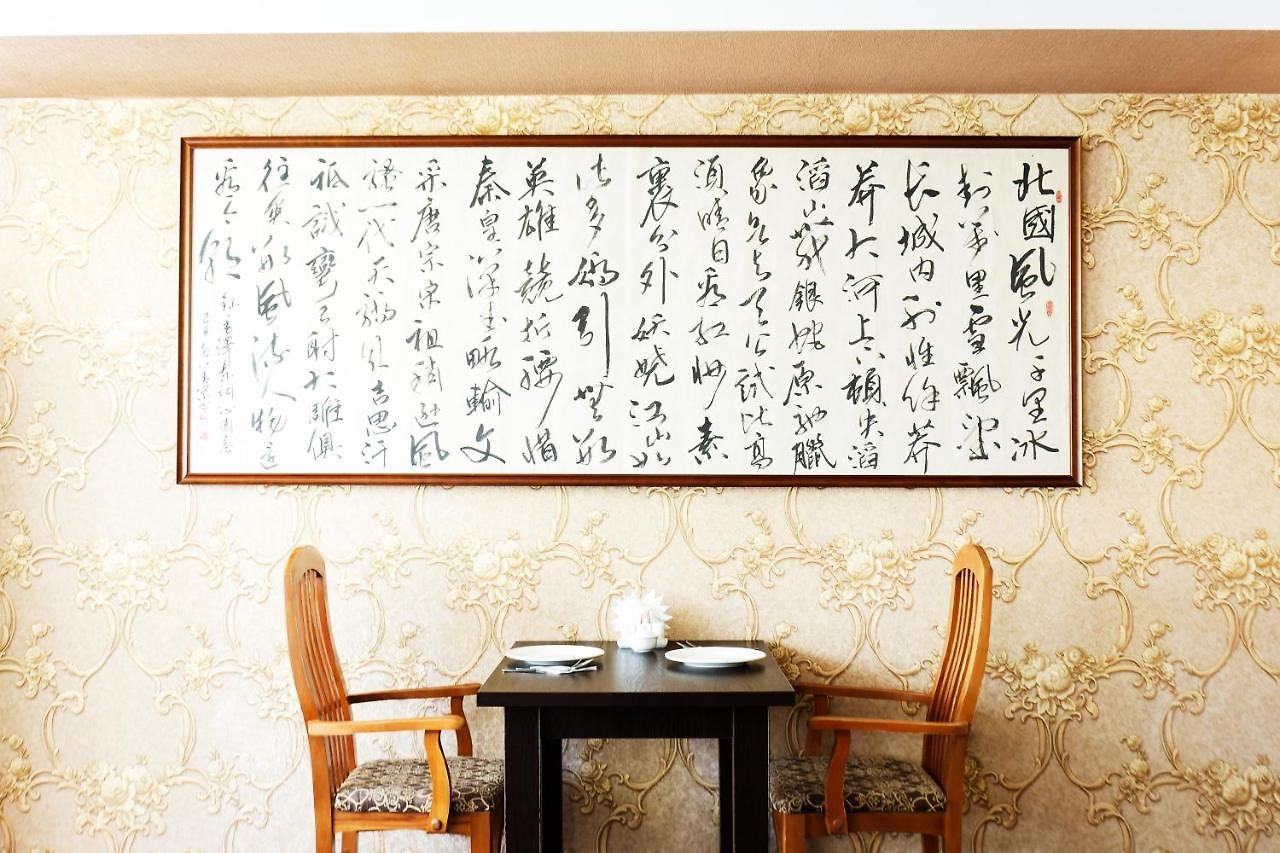 北國風光千里冰
封萬里雪飄望
长城内外惟餘莽
莽大河上下頓失滔
滔山舞銀蛇原馳臘
象欲与天公試比高
須晴日看红妝素
裹分外妖娆江山如
此多嬌引無數
英雄競折腰惜
秦皇漢武略輸文
采唐宗宋祖稍遜風
騷一代天驕成吉思汗
祗識彎弓射大雕俱
往矣數風流人物還
看今朝
錄毛澤東詞沁園春